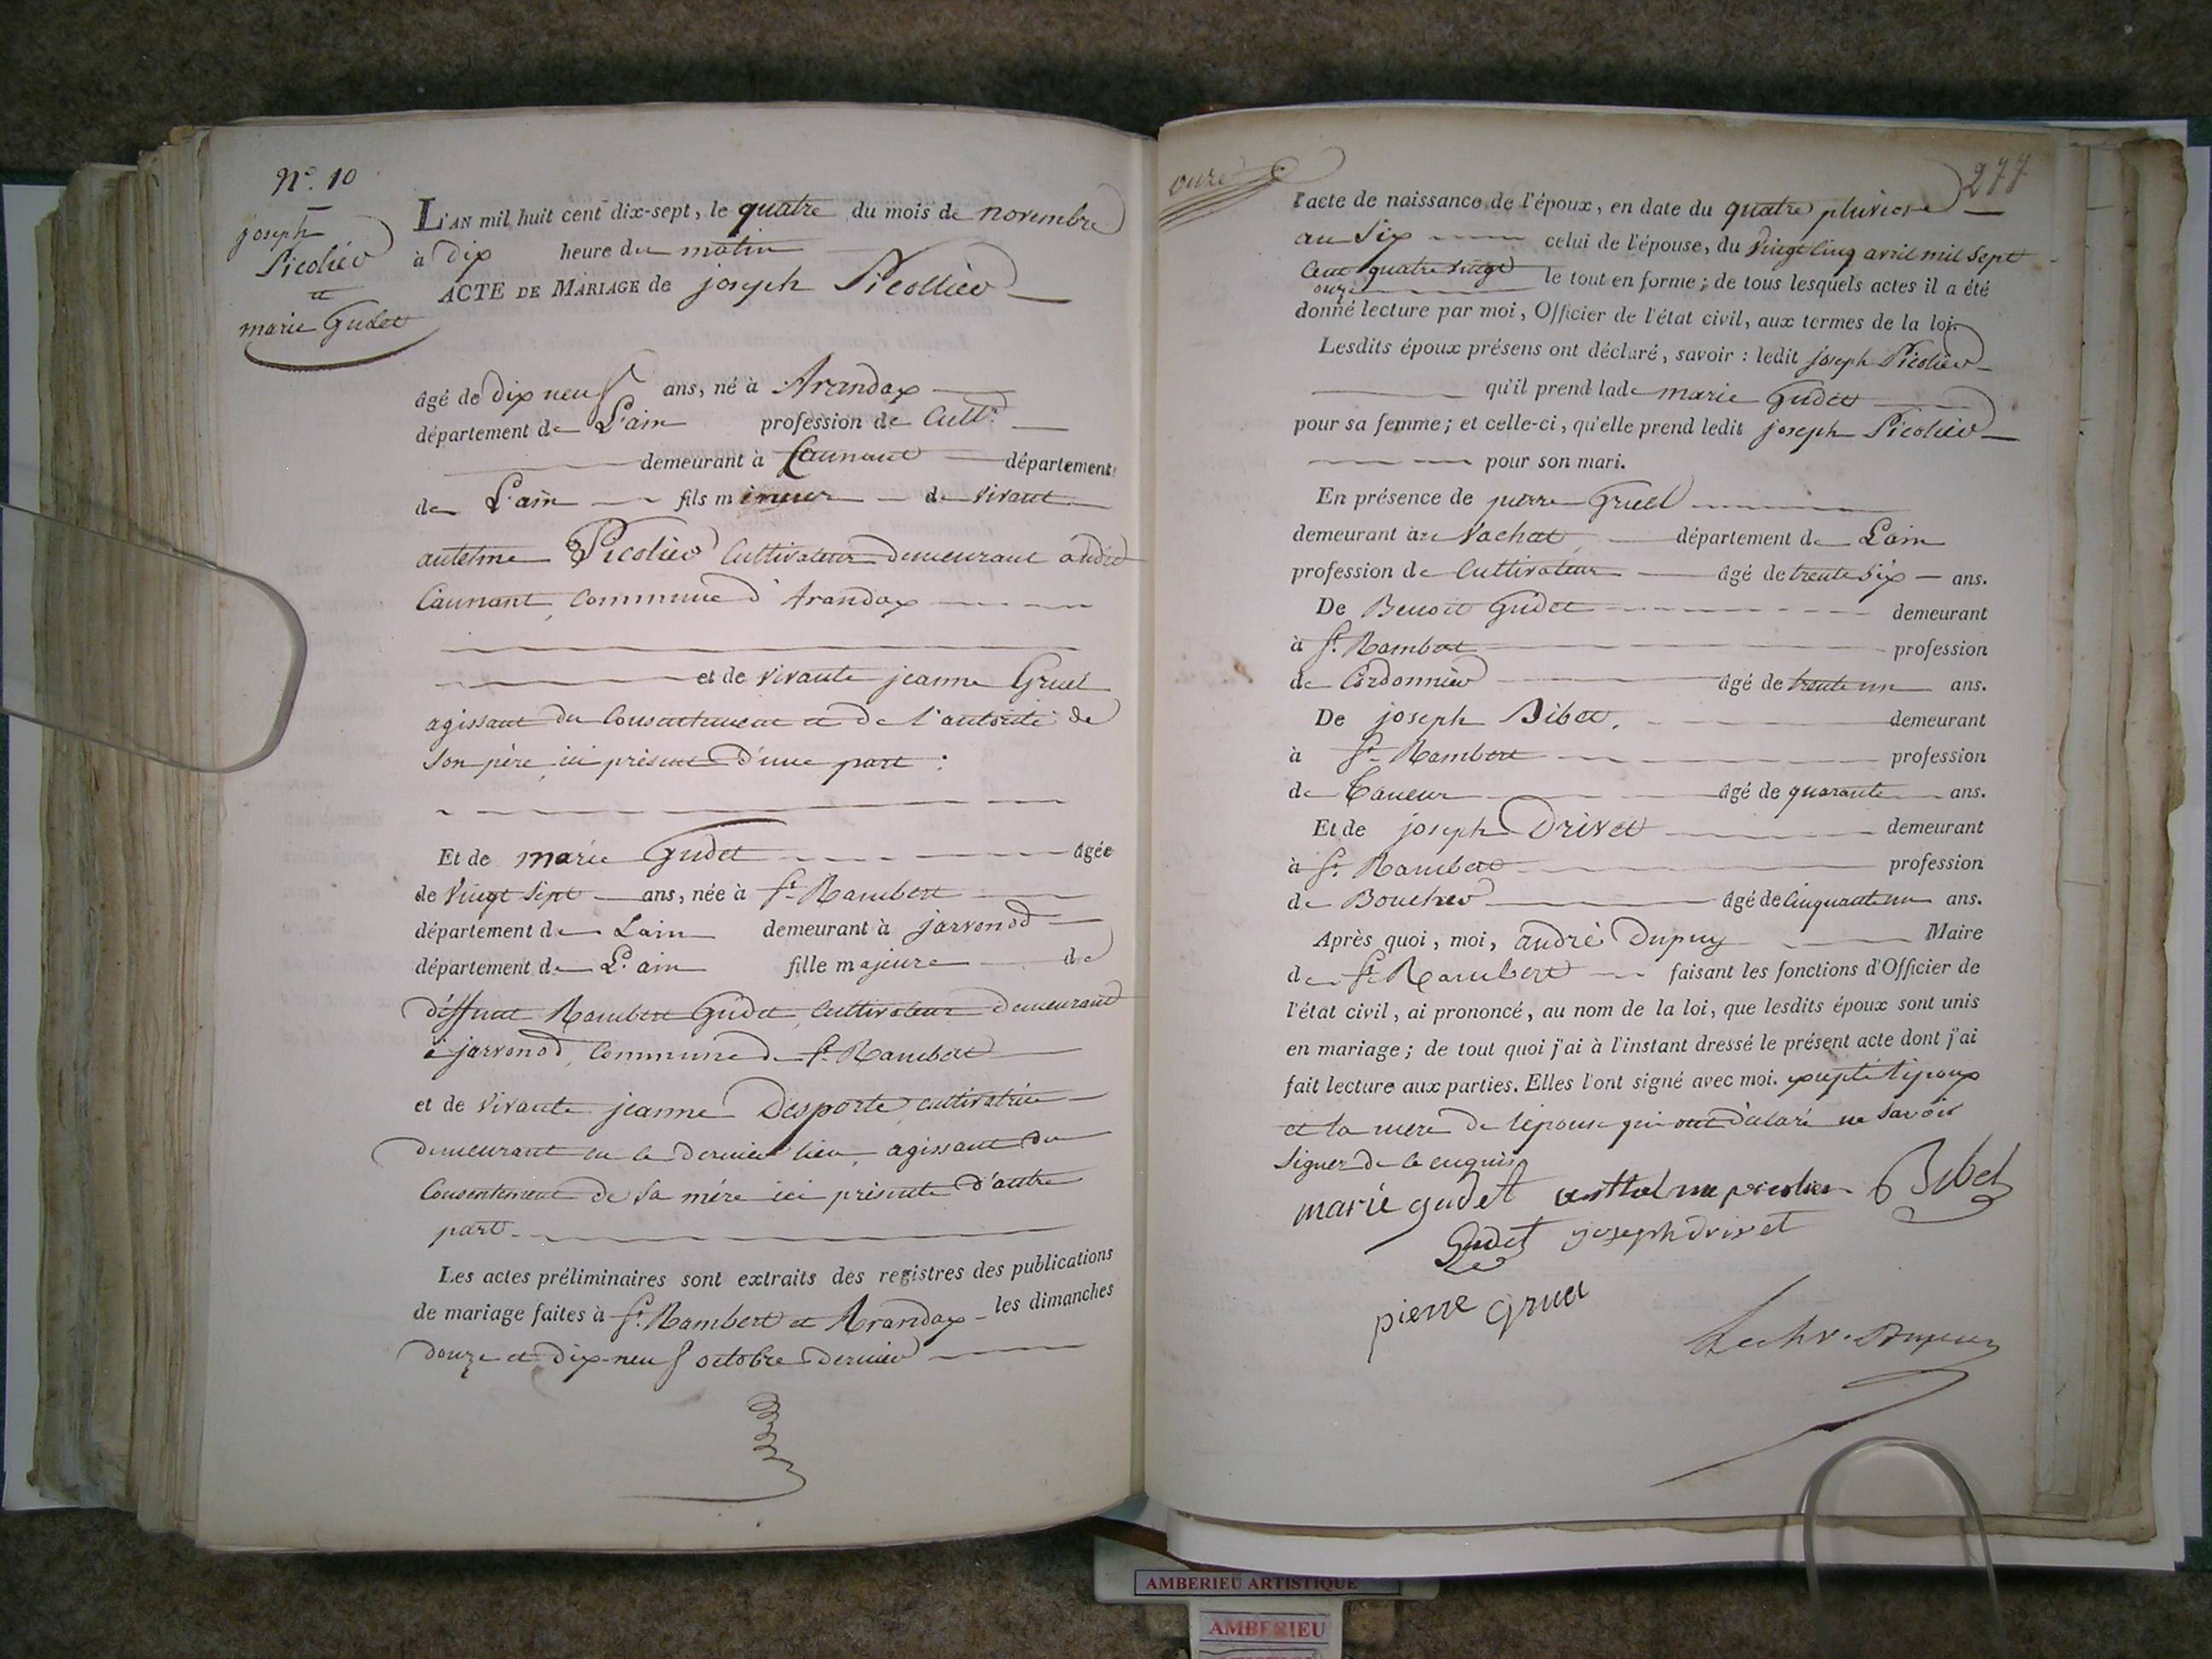 N.º 10
joseph
Picolier
et
marie Gudet
L'AN mil huit cent dix-sept, le quatre du mois de novembre
à dix heure du matin
ACTE DE MARIAGE de joseph Picollier
âgé de dix neuf ans, né à Arandas
département de L'ain profession de Cultr.
demeurant à département
de L'ain fils mineur de vivant
antelme Picolier Cultivateur demeurant
commune d'Arandas
et de vivante jeanne Gruel
agissant du Consentement et de l'autorité de
Son père, ici présent d'une part :
Et de marie Gudet âgée
de vingt Sept ans, née à St. Rambert
département de Lain demeurant à jarvonod
département de L'ain fille majeure de
déffunt Rambert Gudet, Cultivateur demeurant
à jarvonod, Commune de St. Rambert
et de vivante jeanne Desporte, cultivatrice
demeurant en ce dernier lieu, agissant du
Consentement de Sa mère ici présente d'autre
part
Les actes préliminaires sont extraits des registres des publications
de mariage faites à St. Rambert et Arandas les dimanches
douze et dix-neuf octobre dernier
onze
277
l'acte de naissance de l'époux, en date du quatre pluviose
an Six celui de l'épouse, du vingt cinq avril mil Sept
Cent quatre vingt
onze le tout en forme ; de tous lesquels actes il a été
donné lecture par moi, Officier de l'état civil, aux termes de la loi.
Lesdits époux présens ont déclaré, savoir : ledit joseph Picolier
qu'il prend lade marie Gudet
pour sa femme ; et celle-ci, qu'elle prend ledit joseph Picolier
pour son mari.
En présence de pierre Gruel
demeurant au Vachat département de Lain
profession de Cultivateur âgé de trente Six ans.
De Benoit Gudet demeurant
à St. Rambert profession
de Cordonnier âgé de trente un ans.
De joseph Bibet, demeurant
à St. Rambert profession
de Taneur âgé de quarante ans.
Et de joseph Drivet demeurant
à St. Rambert profession
de Boucher âgé de Cinquante un ans.
Après quoi, moi, andré Dupuy Maire
de St. Rambert faisant les fonctions d'Officier de
l'état civil, ai prononcé, au nom de la loi, que lesdits époux sont unis
en mariage ; de tout quoi j'ai à l'instant dressé le présent acte dont j'ai
fait lecture aux parties. Elles l'ont signé avec moi. excepté l'époux
et la mere de l'épouse qui ont déclaré ne Savoir
Signer de ce enquis
marie gudet antthelme picolier Bibet
Gudet joseph drivet
pierre gruel
Dupuy
AMBERIEU ARTISTIQUE
AMBERIEU